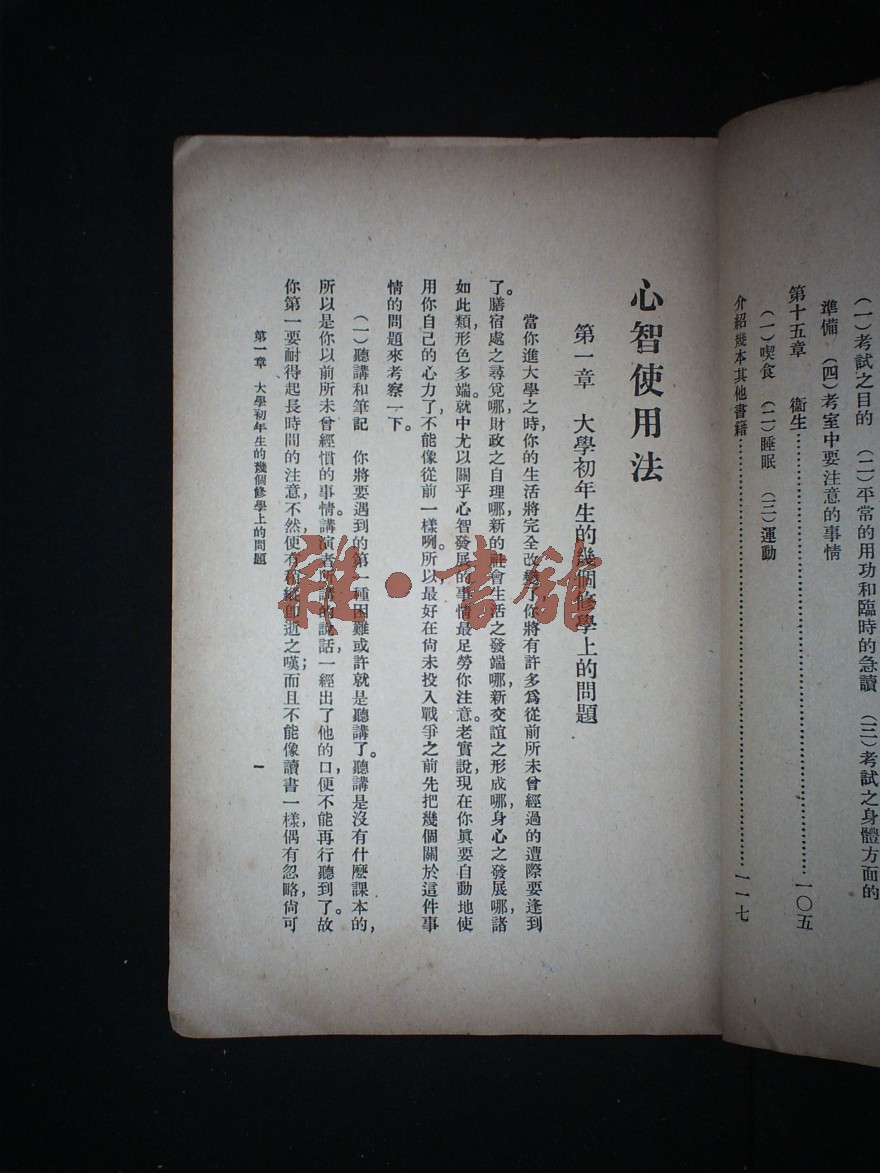 (一)考試之目的 (二)平常的用功和臨時的急讀 (三)考試之身體方面的
準備 (四)考室中要注意的事情
第十五章 衞生……………………………………一〇五
(一)喫食 (二)睡眠 (三)運動
介紹幾本其他書籍……………………………………一一七
心智使用法
第一章 大學初年生的幾個修學上的問題
當你進大學之時,你的生活將完全改變了,你將有許多爲從前所未曾經過的遭際要逢到
了。膳宿處之尋覓哪,財政之自理哪,新的社會生活之發端哪,新交誼之形成哪,身心之發展哪,諸
如此類,形色多端。就中尤以關乎心智發展的事情最足勞你注意。老實說,現在你眞要自動地使
用你自己的心力了,不能像從前一樣咧。所以最好在尙未投入戰爭之前先把幾個關於這件事
情的問題來考察一下。
(一)聽講和筆記 你將要遇到的第一種困難或許就是聽講了。聽講是沒有什麽課本的,
所以是你以前所未曾經慣的事情。講演者所講的說話一經出了他的口,便不能再行聽到了。故
你第一要耐得起長時間的注意,不然便有稍縱卽逝之嘆;而且不能像讀書一樣,偶有忽略,尙可
第一章 大學初年生的幾個修學上的問題
一
雜·書館